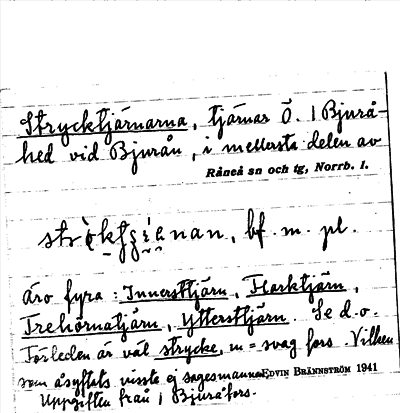 Strycktjärnarna, tjärnar Ö. i Bjurå-
hed vid Bjurån, i mellersta delen av
Råneå sn och tg, Norrb. l.
bf. m. pl.
äro fyra: Innersttjärn, Flarktjärn,
Trehörnatjärn, Yttersttjärn. Se d.o.
Förleden är väl strycke, m = svag fors. Vilken
som åsyftats visste ej sagesmannen. EDVIN BRÄNNSTRÖM 1941
Uppgiften från i Bjuråfors.